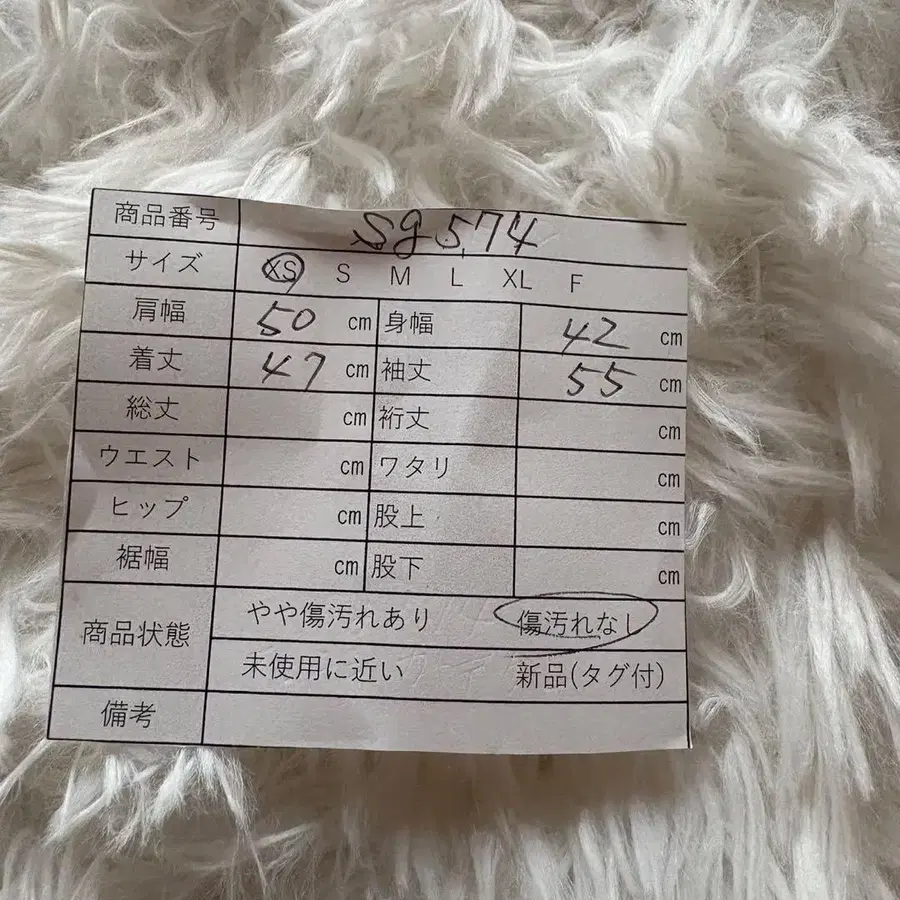 商品番号 Sg574
サイズ XS S M L XL F
肩幅 50 cm 身幅 42 cm
着丈 47 cm 袖丈 55 cm
総丈 cm 裄丈 cm
ウエスト cm ワタリ cm
ヒップ cm 股上 cm
裾幅 cm 股下 cm
商品状態 やや傷汚れあり 傷汚れなし
未使用に近い 新品(タグ付)
備考